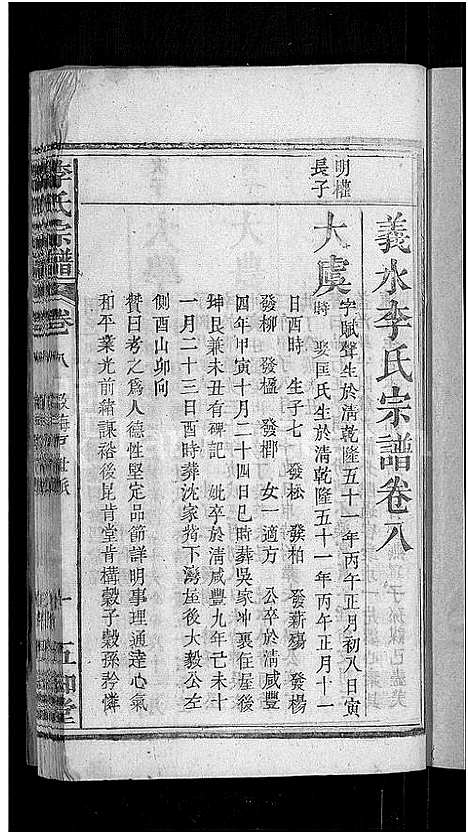 義水李氏宗譜卷八
明權
長子
大虞
字賦聲生於清乾隆五十一年丙午正月初八日寅
時 娶匡氏生於清乾隆五十一年丙午正月十一
日酉時 生子七 發松 發柏 發薪殤 發楊
發柳 發楹 發槨 女一適方 公卒於清咸豐
四年甲寅十月二十四日巳時葬吳家冲裏在屋後
坤艮兼未丑有碑記 妣卒於清咸豐九年己未十
一月二十三日酉時葬沈家揹下灣屋後大毅公左
側酉山卯向
贊曰考之爲人德性堅定品節詳明事理通達心氣
和平業光前緒謀裕後昆肯堂肯構穀子穀孫矜憐
李氏宗譜
卷八